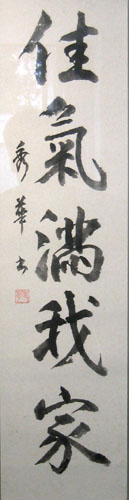 佳氣滿我家
秀華書